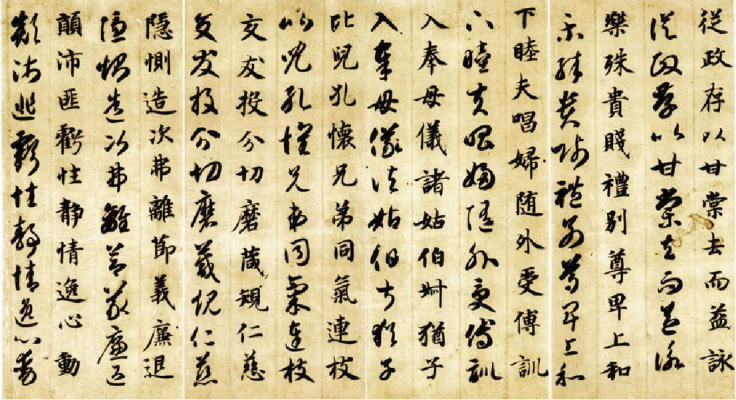 從政存以甘棠去而益詠
從政存以甘棠去而益詠
樂殊貴賤禮別尊卑上和
樂殊貴賤禮別尊卑上和
下睦夫唱婦随外受傅訓
下睦夫唱婦随外受傅訓
入奉母儀諸姑伯叔猶子
入奉母儀諸姑伯叔猶子
比兒孔懷兄弟同氣連枝
比兒孔懷兄弟同氣連枝
交友投分切磨箴規仁慈
交友投分切磨箴規仁慈
隱惻造次弗離節義廉退
隱惻造次弗離節義廉退
顛沛匪虧性静情逸心動
顛沛匪虧性静情逸心動